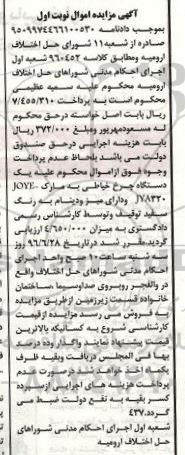 آگهی مزایده اموال نوبت اول
بموجب دادنامه ۹۵۰۹۹۷۴۴۶۶۱۰۰۵۳۰
صادره از شعبه ۱۱ شورای حل اختلاف
ارومیه ومطابق کلاسه ۹۶۰۴۵۲ شعبه اول
اجرای احکام مدنی شوراهای حل اختلاف
ارومیه محکوم علیه سمیه عظیمی
محکوم است به پرداخت ۷/۴۵۵/۳۱۰
ریال بابت اصل خواسته درحق محکوم
له مسعودمهرپور ومبلغ ۳۷۲/۰۰۰ ریال
بابت هزینه اجرایی درحق صندوق
دولت می باشد بلحاظ عدم پرداخت
وجوه فوق ازاموال محکوم علیه یک
دستگاه چرخ خیاطی به مارک JOYE-
JY۸۳۲۰ ودارای میز ودینام به رنگ
سفید توقیف وتوسط کارشناس رسمی
دادگستری به میزان ۴/۶۵۰/۰۰۰ ارزیابی
گردید.مقرر شد درتاریخ ۹۶/۶/۲۸ روز
سه شنبه ساعت ۱۰ صبح واحد اجرای
احکام مدنی شوراهای حل اختلاف واقع
در والفجر روبروی صداوسیما ،ساختمان
خانواده قسمت زیرزمین ازطریق مزایده
به فروش می رسد مزایده ازقیمت
کارشناسی شروع به کسانیکه بالاترین
قیمت پیشنهاد نمایند واگذار وده درصد
بها فی المجلس دریافت وبقیه ظرف
یکماه اخذ خواهد شد درصورت عدم
پرداخت هزینه های اجرایی ازسپرده
کسر بقیه به نفع دولت ضبط می
گردد.۴۳۷
شعبه اول اجرای احکام مدنی شوراهای
حل اختلاف ارومیه